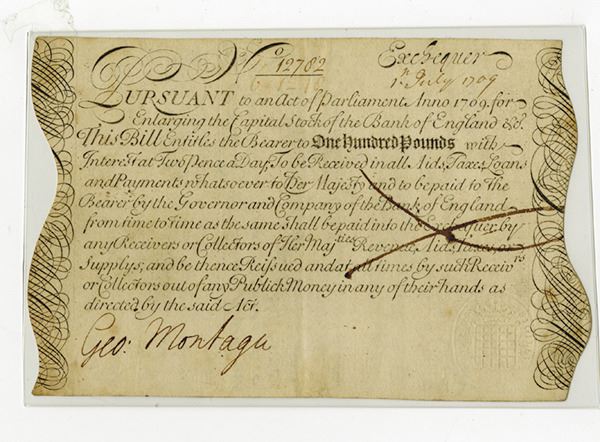 No 12782 Exchequer
1st July 1709
PURSUANT to an Act of Parliament Anno 1709. for
Enlarging the Capital Stock of the Bank of England &c.
This Bill Entitles the Bearer to One Hundred Pounds with
Interest at Two Pence a Day, To be Received in all Aids, Taxes, Loans
and Payments whatsoever to Her Majesty and to be paid to the
Bearer by the Governor and Company of the Bank of England
from time to time as the same shall be paid into the Exchequer, by
any Receivers or Collectors of Her Majties Revenue, Aids, Taxes, or
Supplys; and be thence Reissued and at all times by such Receivrs
or Collectors out of any Publick Money in any of their hands as
directed by the said Act.
Geo: Montagu